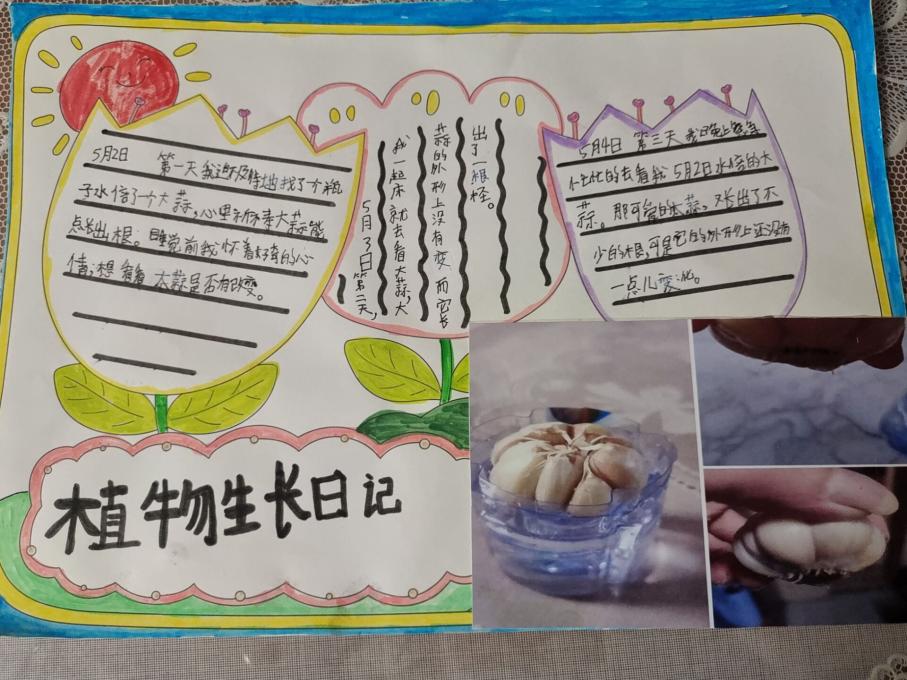 5月2日 第一天我迫不及待地找了个瓶
子水倍了一个大蒜,心里祈祷大蒜能
点长出根。睡觉前我怀着好奇的心
情,想看看大蒜是否有改变。
5月3日第二天,
我一起床就去看大蒜,大
蒜的外形上没有变而它长
出了一根怪。
5月4日 第三天 我
的去看我5月2日水倍的大
蒜。那可爱的大蒜,又长出了不
少的根,可是它的外形上还没有
一点儿变化。
植物生长日记